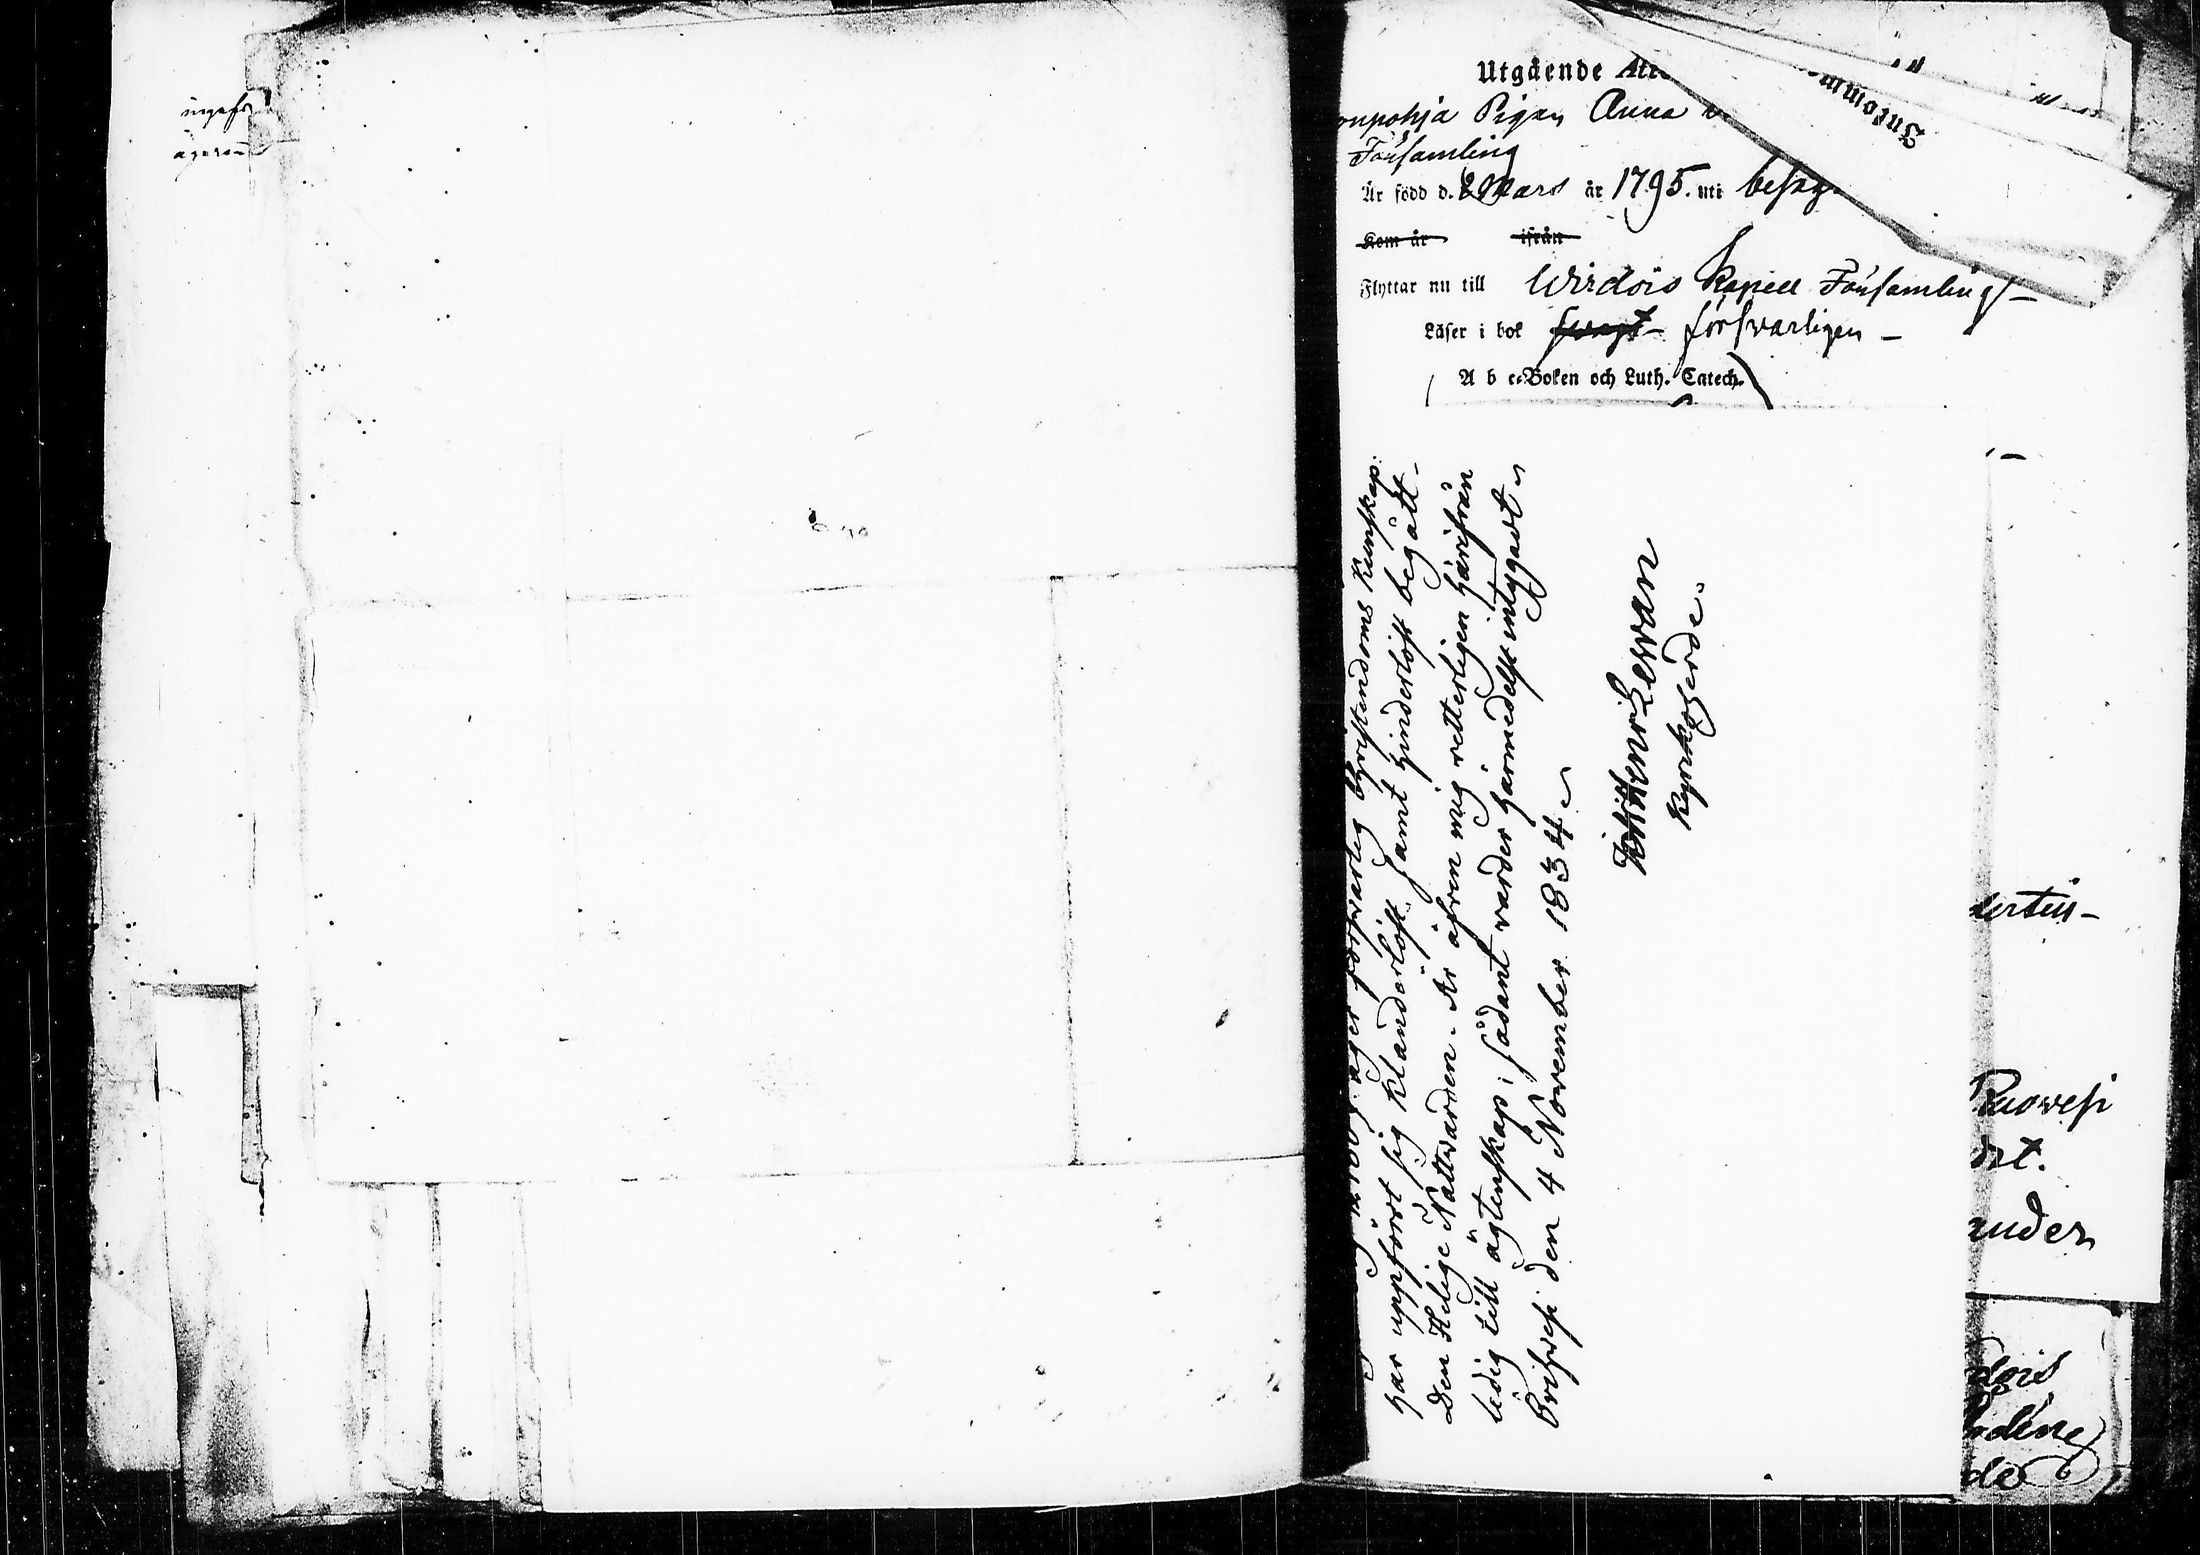 ägaren
Utgående
Inkomm
Pigan Anna
Församling
Är född d. 2 Mars år 1795. uti besag
Kom år ifrån
Flyttar nu till Wirdois Kapell Församling
Läser i bok swagt försvarligen
A b c-Boken och Luth. Catech.
äger försvarlig Christendoms Kunskap:
har uppfördt sig klanderlöst samt hinderlöst begått
Den Helige Nattvarden. Är äfven mig vetterligen härifrån
ledig till ägtenskap; sådant varder härmedelst intygadt
Orihvesi den 4 November 1834.
Lewan
Kyrkoherde.
Ruovesi
dois
de